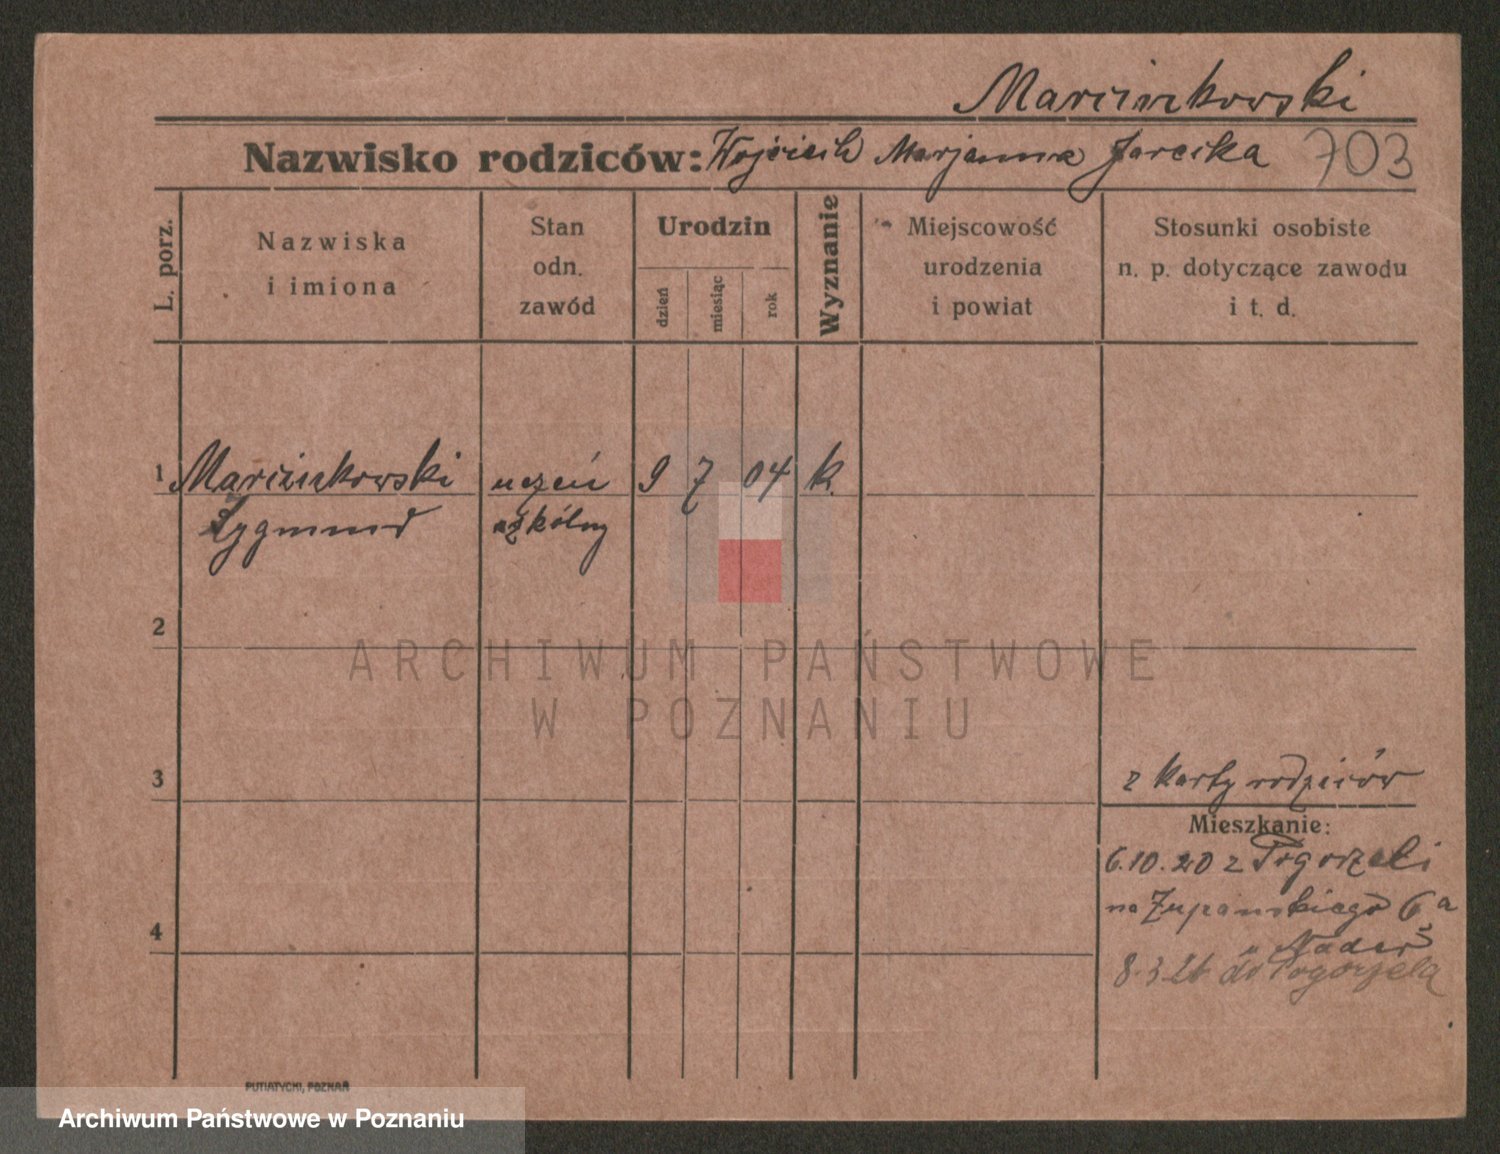 Marcinkowski
Nazwisko rodziców: Wojciech Marjanna Jarecka 703
L. porz.
Nazwiska
i imiona
Stan
odn.
zawód
Urodzin
dzień
miesiąc
rok
Wyznanie
Miejscowość
urodzenia
i powiat
Stosunki osobiste
n. p. dotyczące zawodu
i t. d.
1 Marcinkowski uczeń 9 7 04 k.
Zygmund szkólny
2
ARCHIWUM PAŃSTWOWE
W POZNANIU
3
z karty rodziców
Mieszkanie:
6.10.20 z Pogorzeli
na Zupanskiego 6a
4
u
8.3.21 do Pogorzela
PUTIATYCKI, POZNAŃ
Archiwum Państwowe w Poznaniu